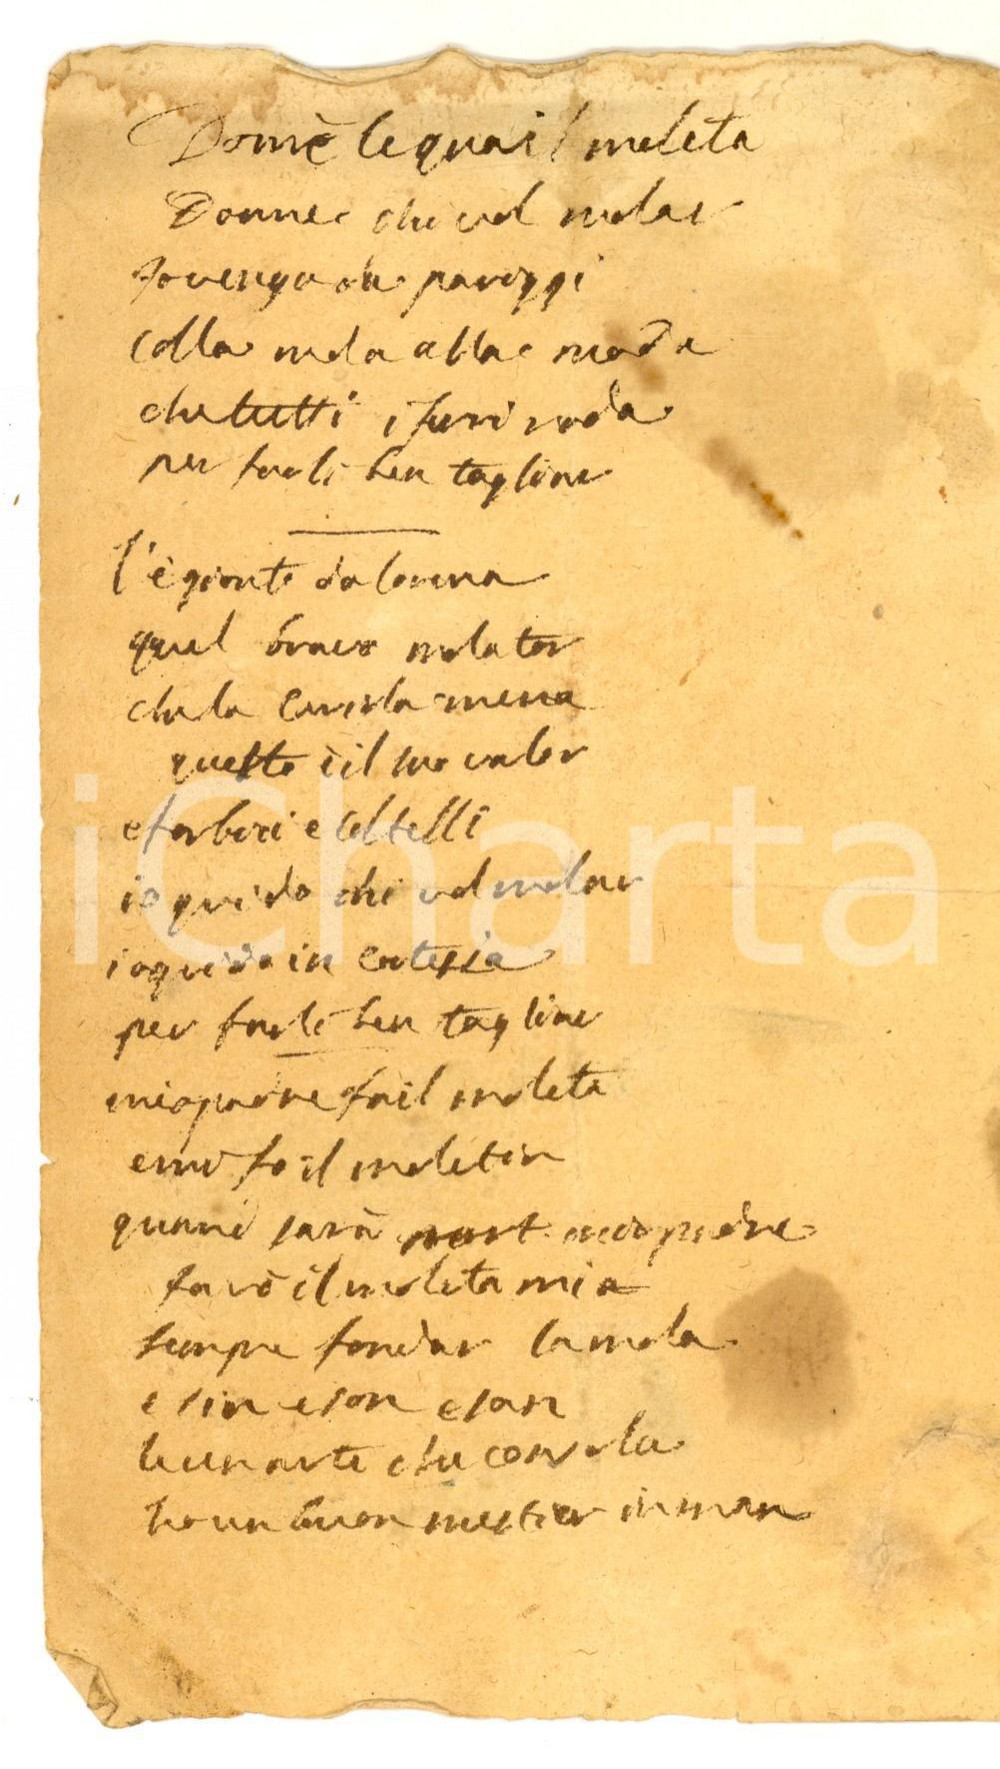 Donne le qua il moleta
Donne chi vol molar
Io vengo da pariggi
colla mola alla moda
che tutti i feri roda
per farli ben tagliar
l'è gionto da lorena
quel bravo molator
che la mena
questo è il suo valor
e forbici e coltelli
io grido chi vol molar
io grido in cortesia
per farli ben tagliar
mio padre fa il moleta
e mi fo il moletin
quand sarà mort mio padre
farò il moleta mi
sempre fondar la mola
e sin e son e san
le un arte che consola
ho un buon mestier in man
iCharta